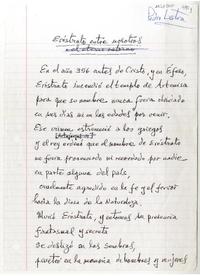 Eróstrato entre nosotros
En el año 356 antes de Cristo, y en Efeso,
Eróstrato incendió el templo de Artemisa
para que su nombre nunca fuera olvidado
en los días ni en las edades por venir.
Ese crimen estremeció a los griegos
y el rey ordenó que el nombre de Eróstrato
no fuera pronunciado ni recordado por nadie
en parte alguna del país,
cruelmente agredido en la fe y el fervor
hacia la Diosa de la Naturaleza.
Murió Eróstrato, y entonces su presencia
fantasmal y secreta
se deslizó en las sombras,
en la memoria de hombres y mujeres